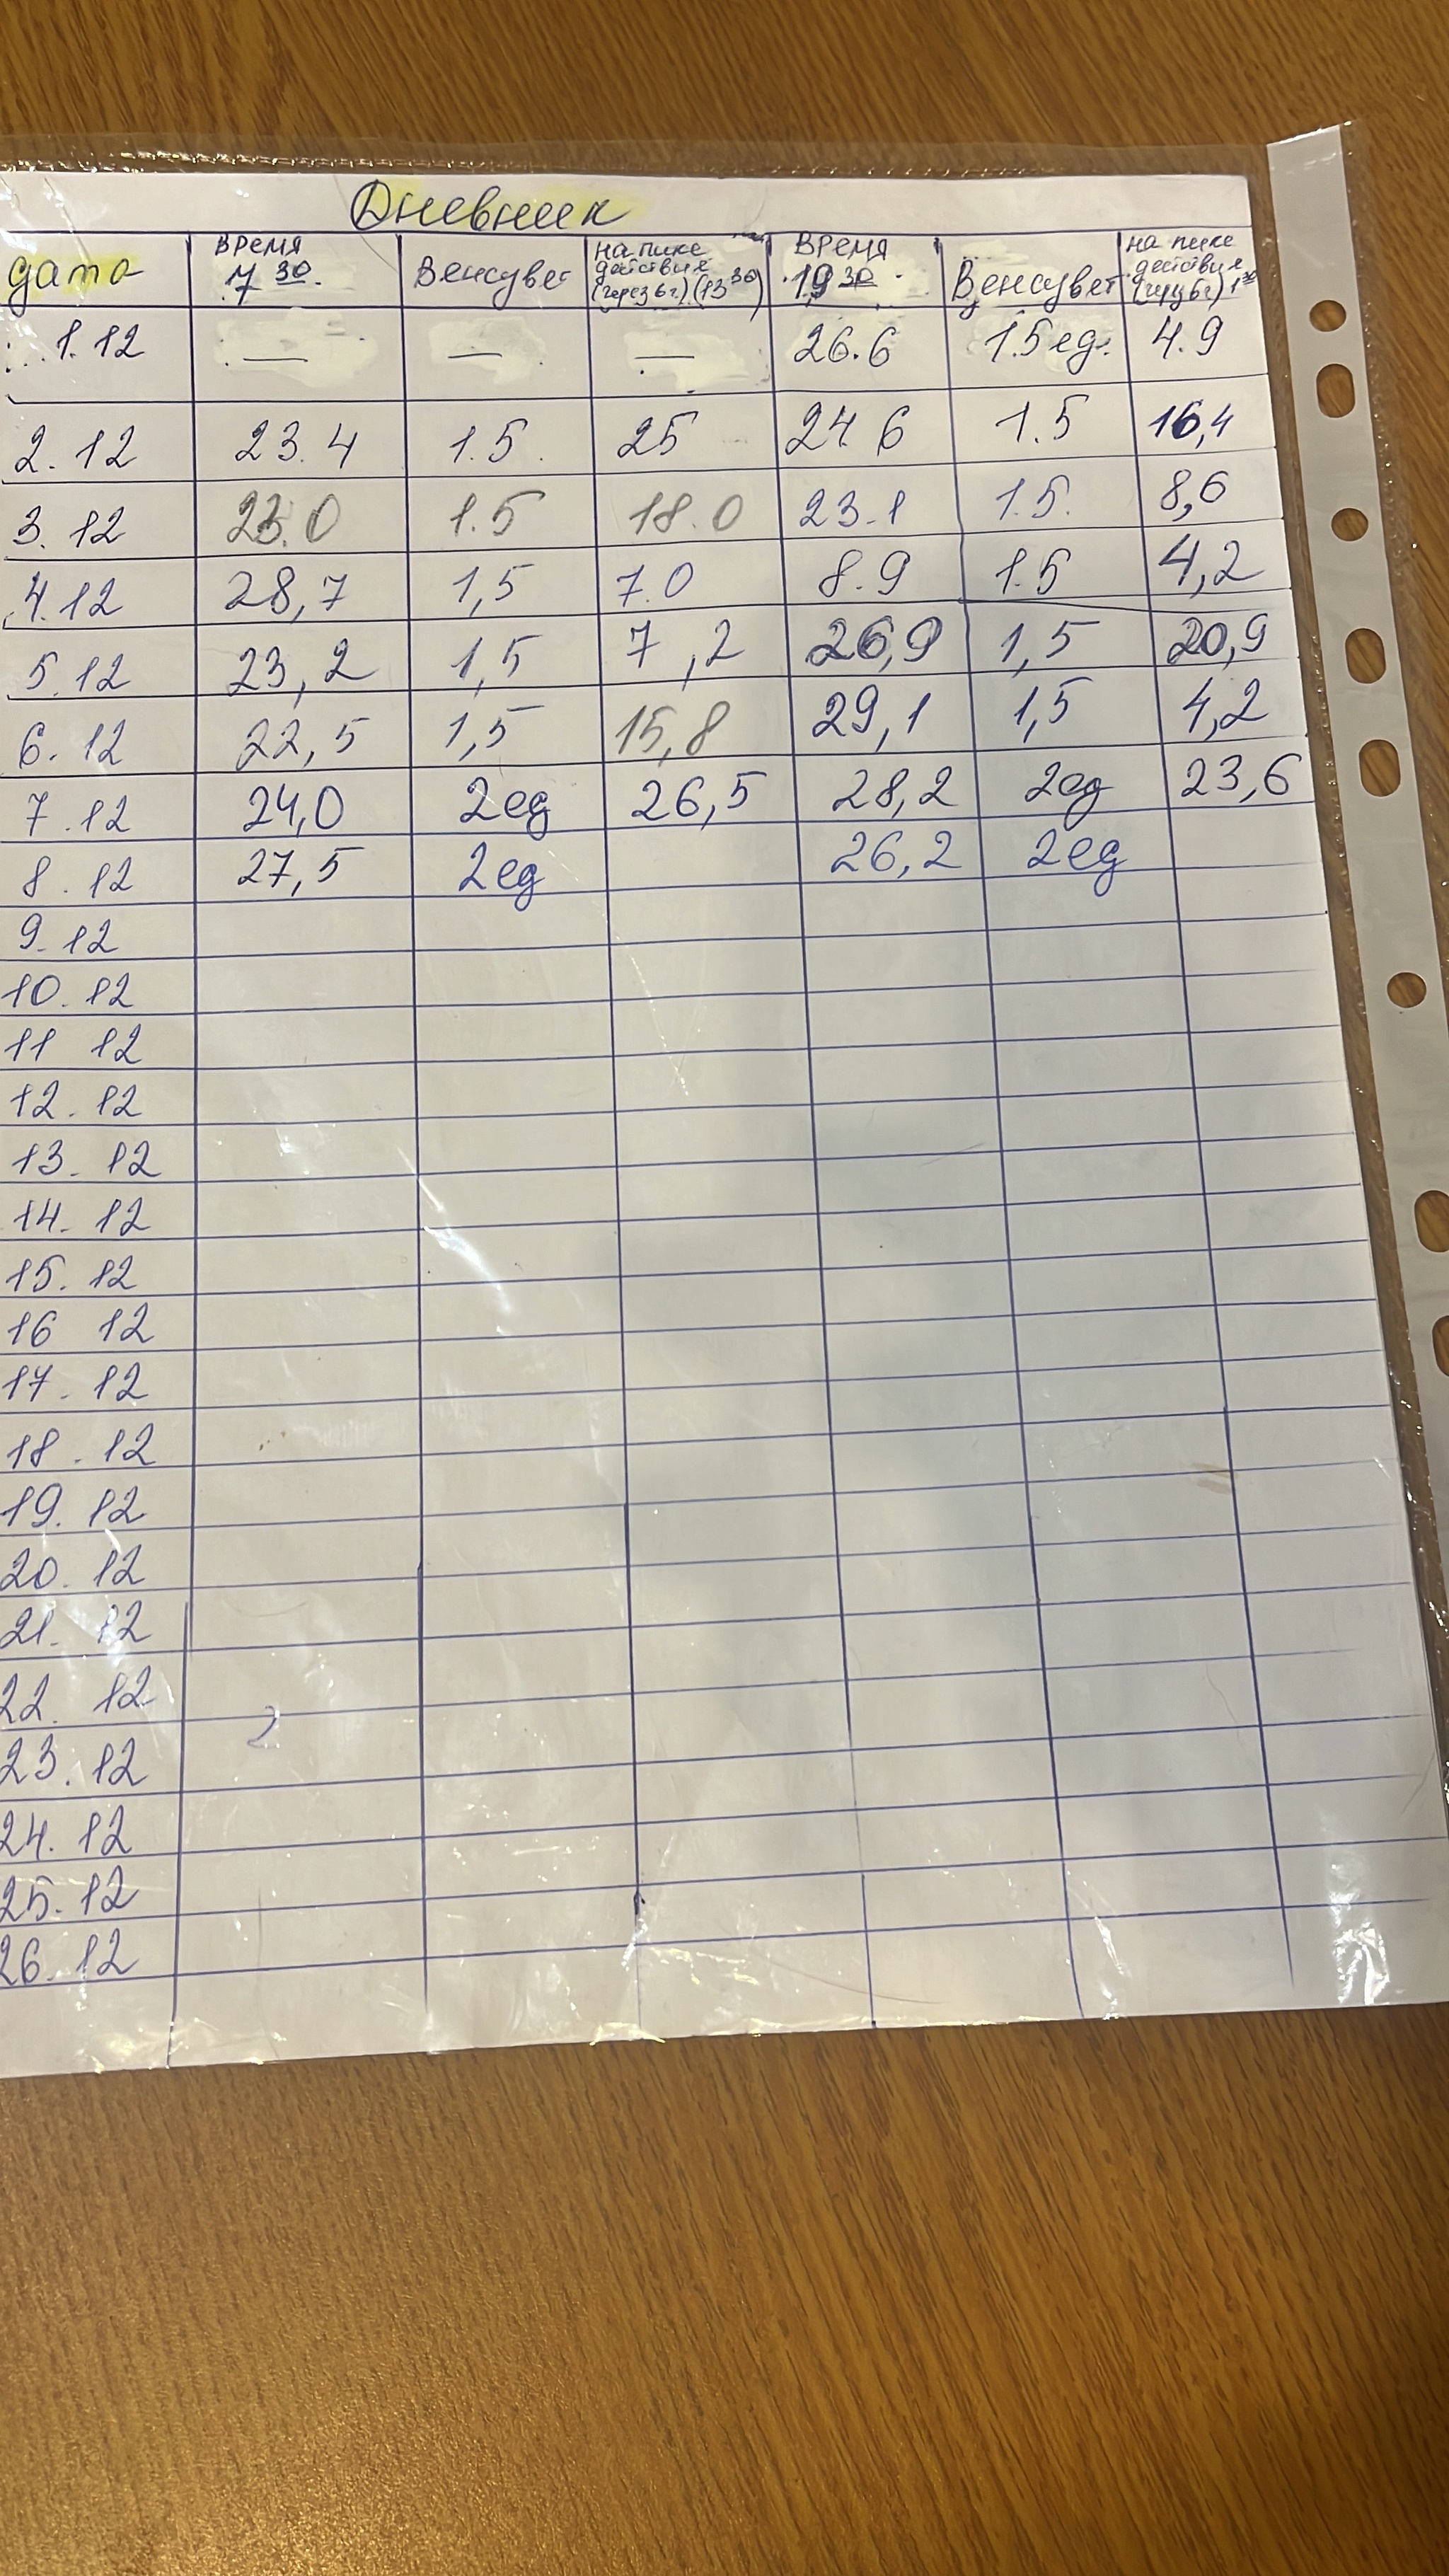 Дневник
дата
время 7 30
Венсувет
на пике действия (через 6 ч.) (13 30)
время 19 30
Венсувет
на пике действия (через 6ч) 1 30
1.12 — — — 26.6 1.5 ед. 4.9
2.12 23.4 1.5. 25 24.6 1.5 16,4
3.12 23.0 1.5 18.0 23.1 1.5. 8,6
4.12 28,7 1,5 7.0 8.9 1.5 4,2
5.12 23,2 1,5 7,2 26,9 1,5 20,9
6.12 22,5 1,5 15,8 29,1 1,5 4,2
7.12 24,0 2ед 26,5 28,2 2ед 23,6
8.12 27,5 2ед 26,2 2ед
9.12
10.12
11 12
12.12
13.12
14.12
15.12
16 12
17.12
18.12
19.12
20.12
21.12
22.12
23.12
24.12
25.12
26.12